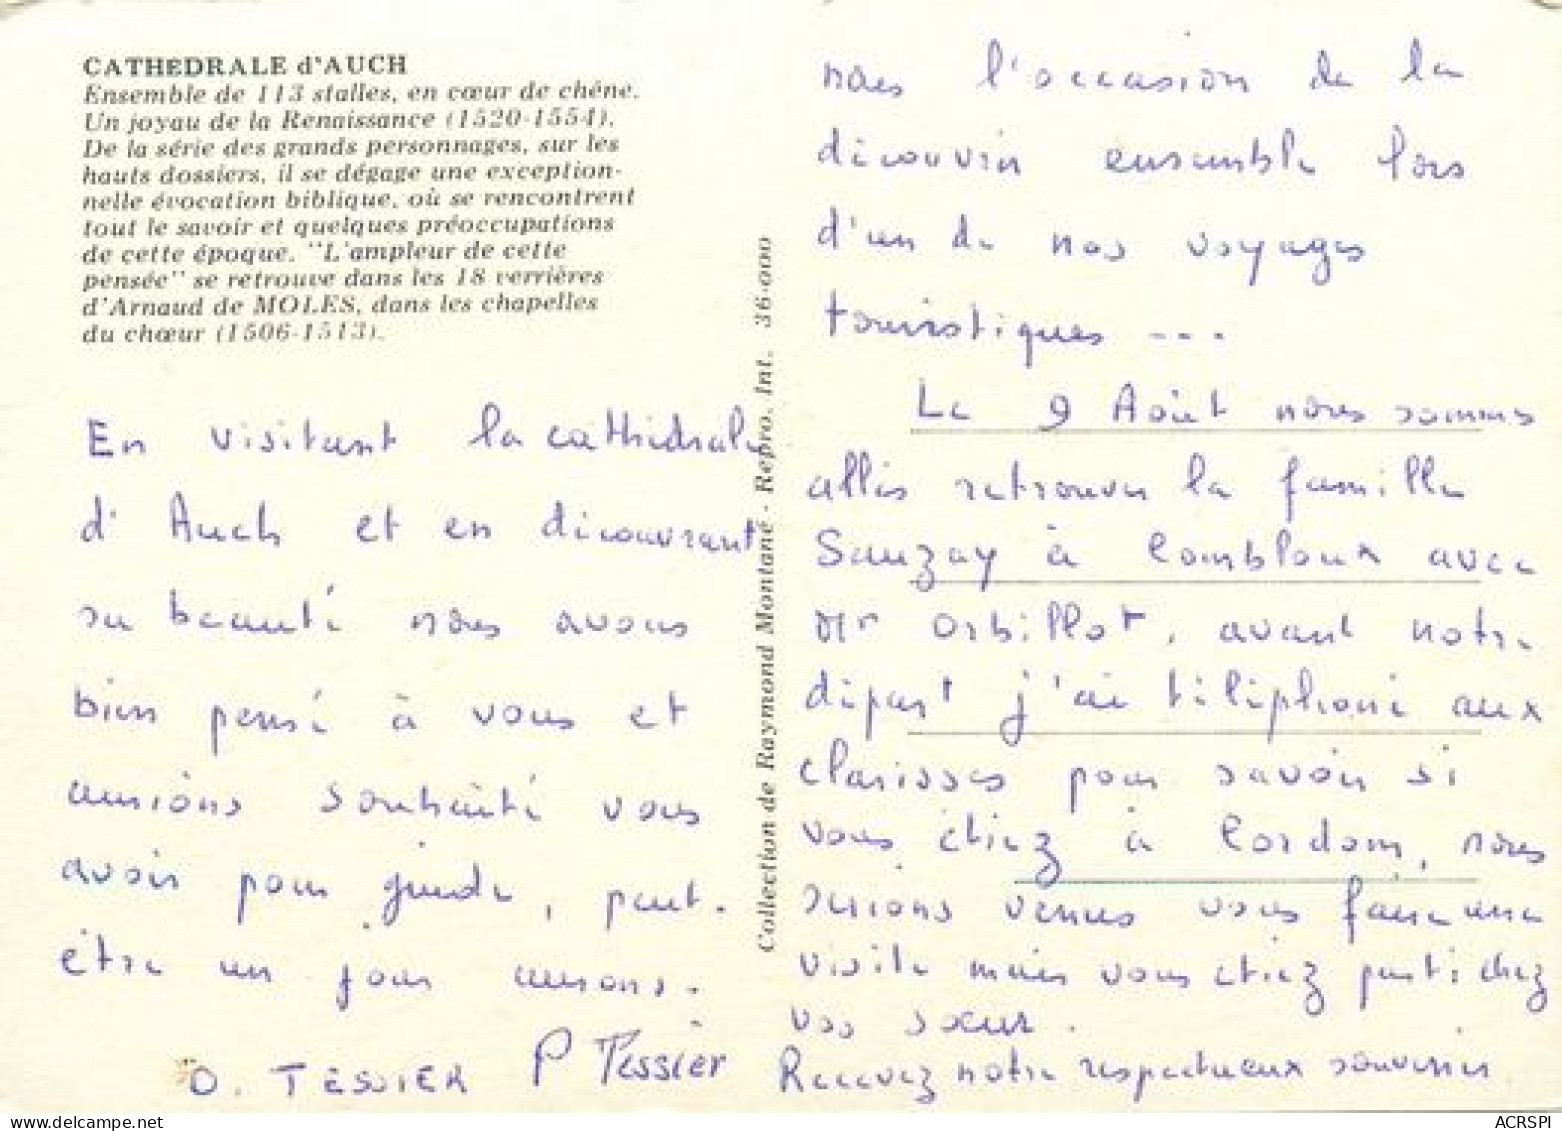 CATHEDRALE d'AUCH
Ensemble de 113 stalles, en cœur de chêne.
Un joyau de la Renaissance (1520-1554).
De la série des grands personnages, sur les
hauts dossiers, il se dégage une exception-
nelle évocation biblique, où se rencontrent
tout le savoir et quelques préoccupations
de cette époque. "L'ampleur de cette
pensée" se retrouve dans les 18 verrières
d'Arnaud de MOLES, dans les chapelles
du chœur (1506-1513).
En visitant la cathédrale
d'Auch et en découvrant
sa beauté nous avons
bien pensé à vous et
aurions souhaité vous
avoir pour guide, peut-
être un jour aurons-
O. TESSIER P Tessier
Collection de Raymond Montané - Repro. Int. 36-000
nous l'occasion de la
découvrir ensemble lors
d'un de nos voyages
touristiques ---
Le 9 Août nous sommes
allés retrouver la famille
Sauzay à Combloux avec
Mr Orbillot, avant notre
départ j'ai téléphoné aux
clarisses pour savoir si
vous étiez à Cordon, nous
serions venus vous faire une
visite mais vous étiez parti chez
vos sœur.
Recevez notre respectueux souvenir
ACRSPI